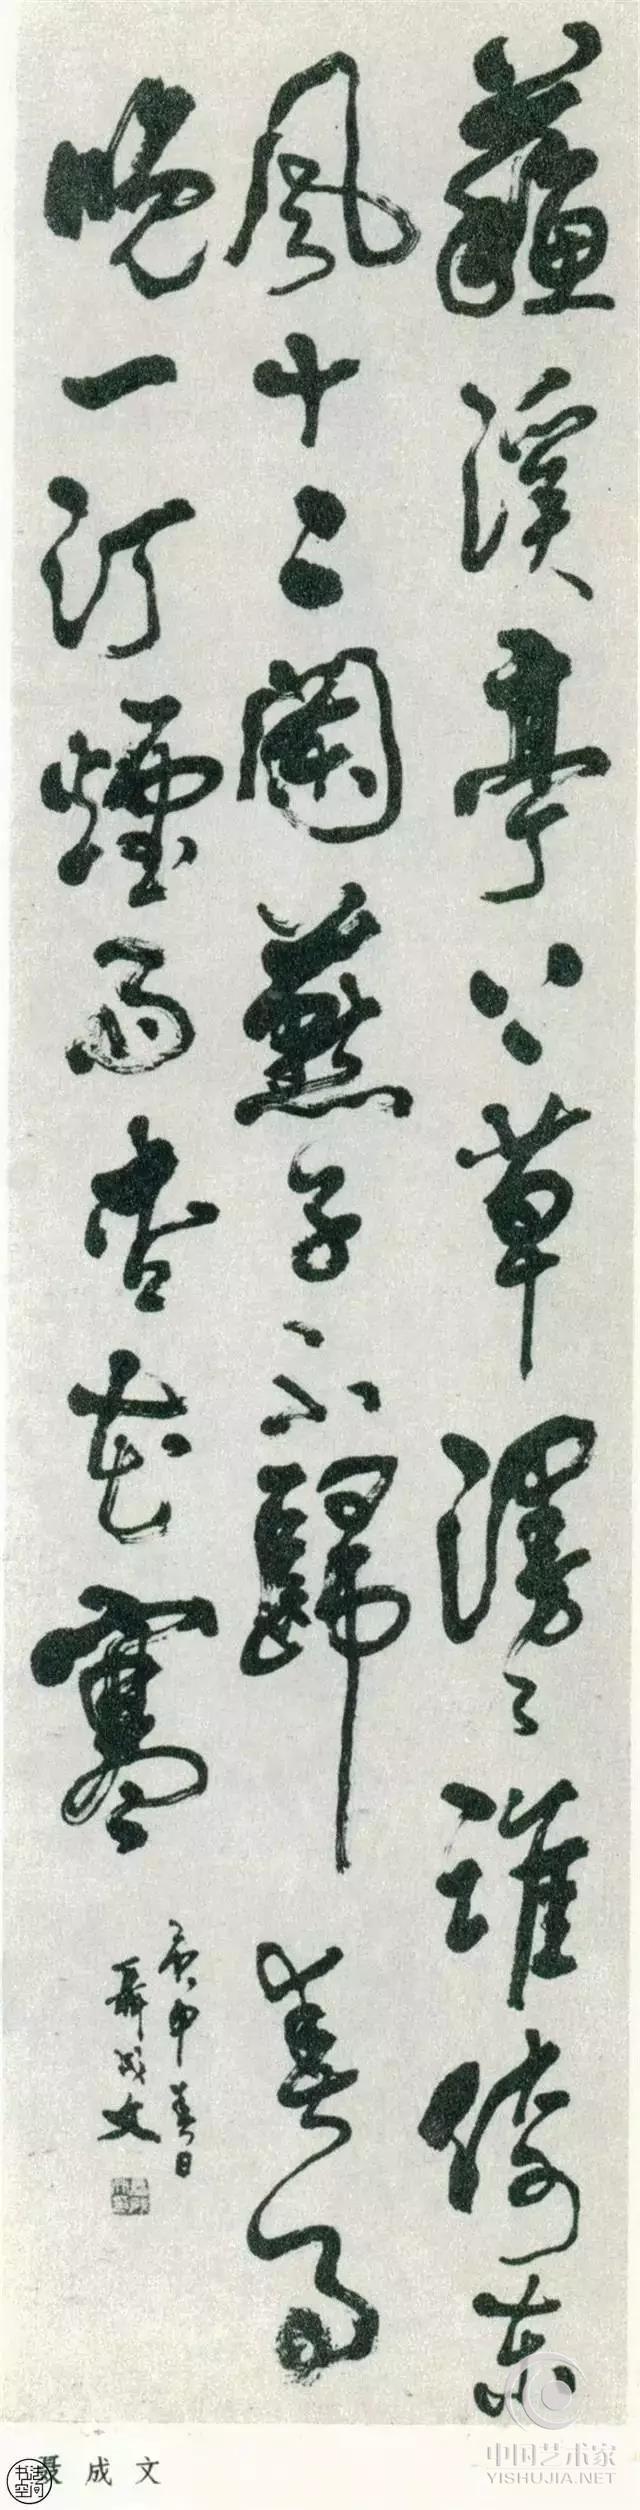 蘇溪亭上草漫々誰倚東
風十二闌燕子不歸春事
晚一汀煙雨杏花寒
庚申春日
聶成文
聂成文
书法空间
中国艺术家
YISHUJIA.NET